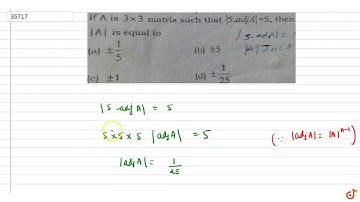 35717
If A is 3×3 matrix such that |5.adjA|=5, then
|A| is equal to
(a) ±1/5
(b) ±5
(c) ±1
(d) ±1/25
|5.adjA| =
|5 adjA| = 5
5×5×5 |adjA| = 5
(∵ |adjA| = |A|ⁿ⁻¹)
|adjA| = 1/25